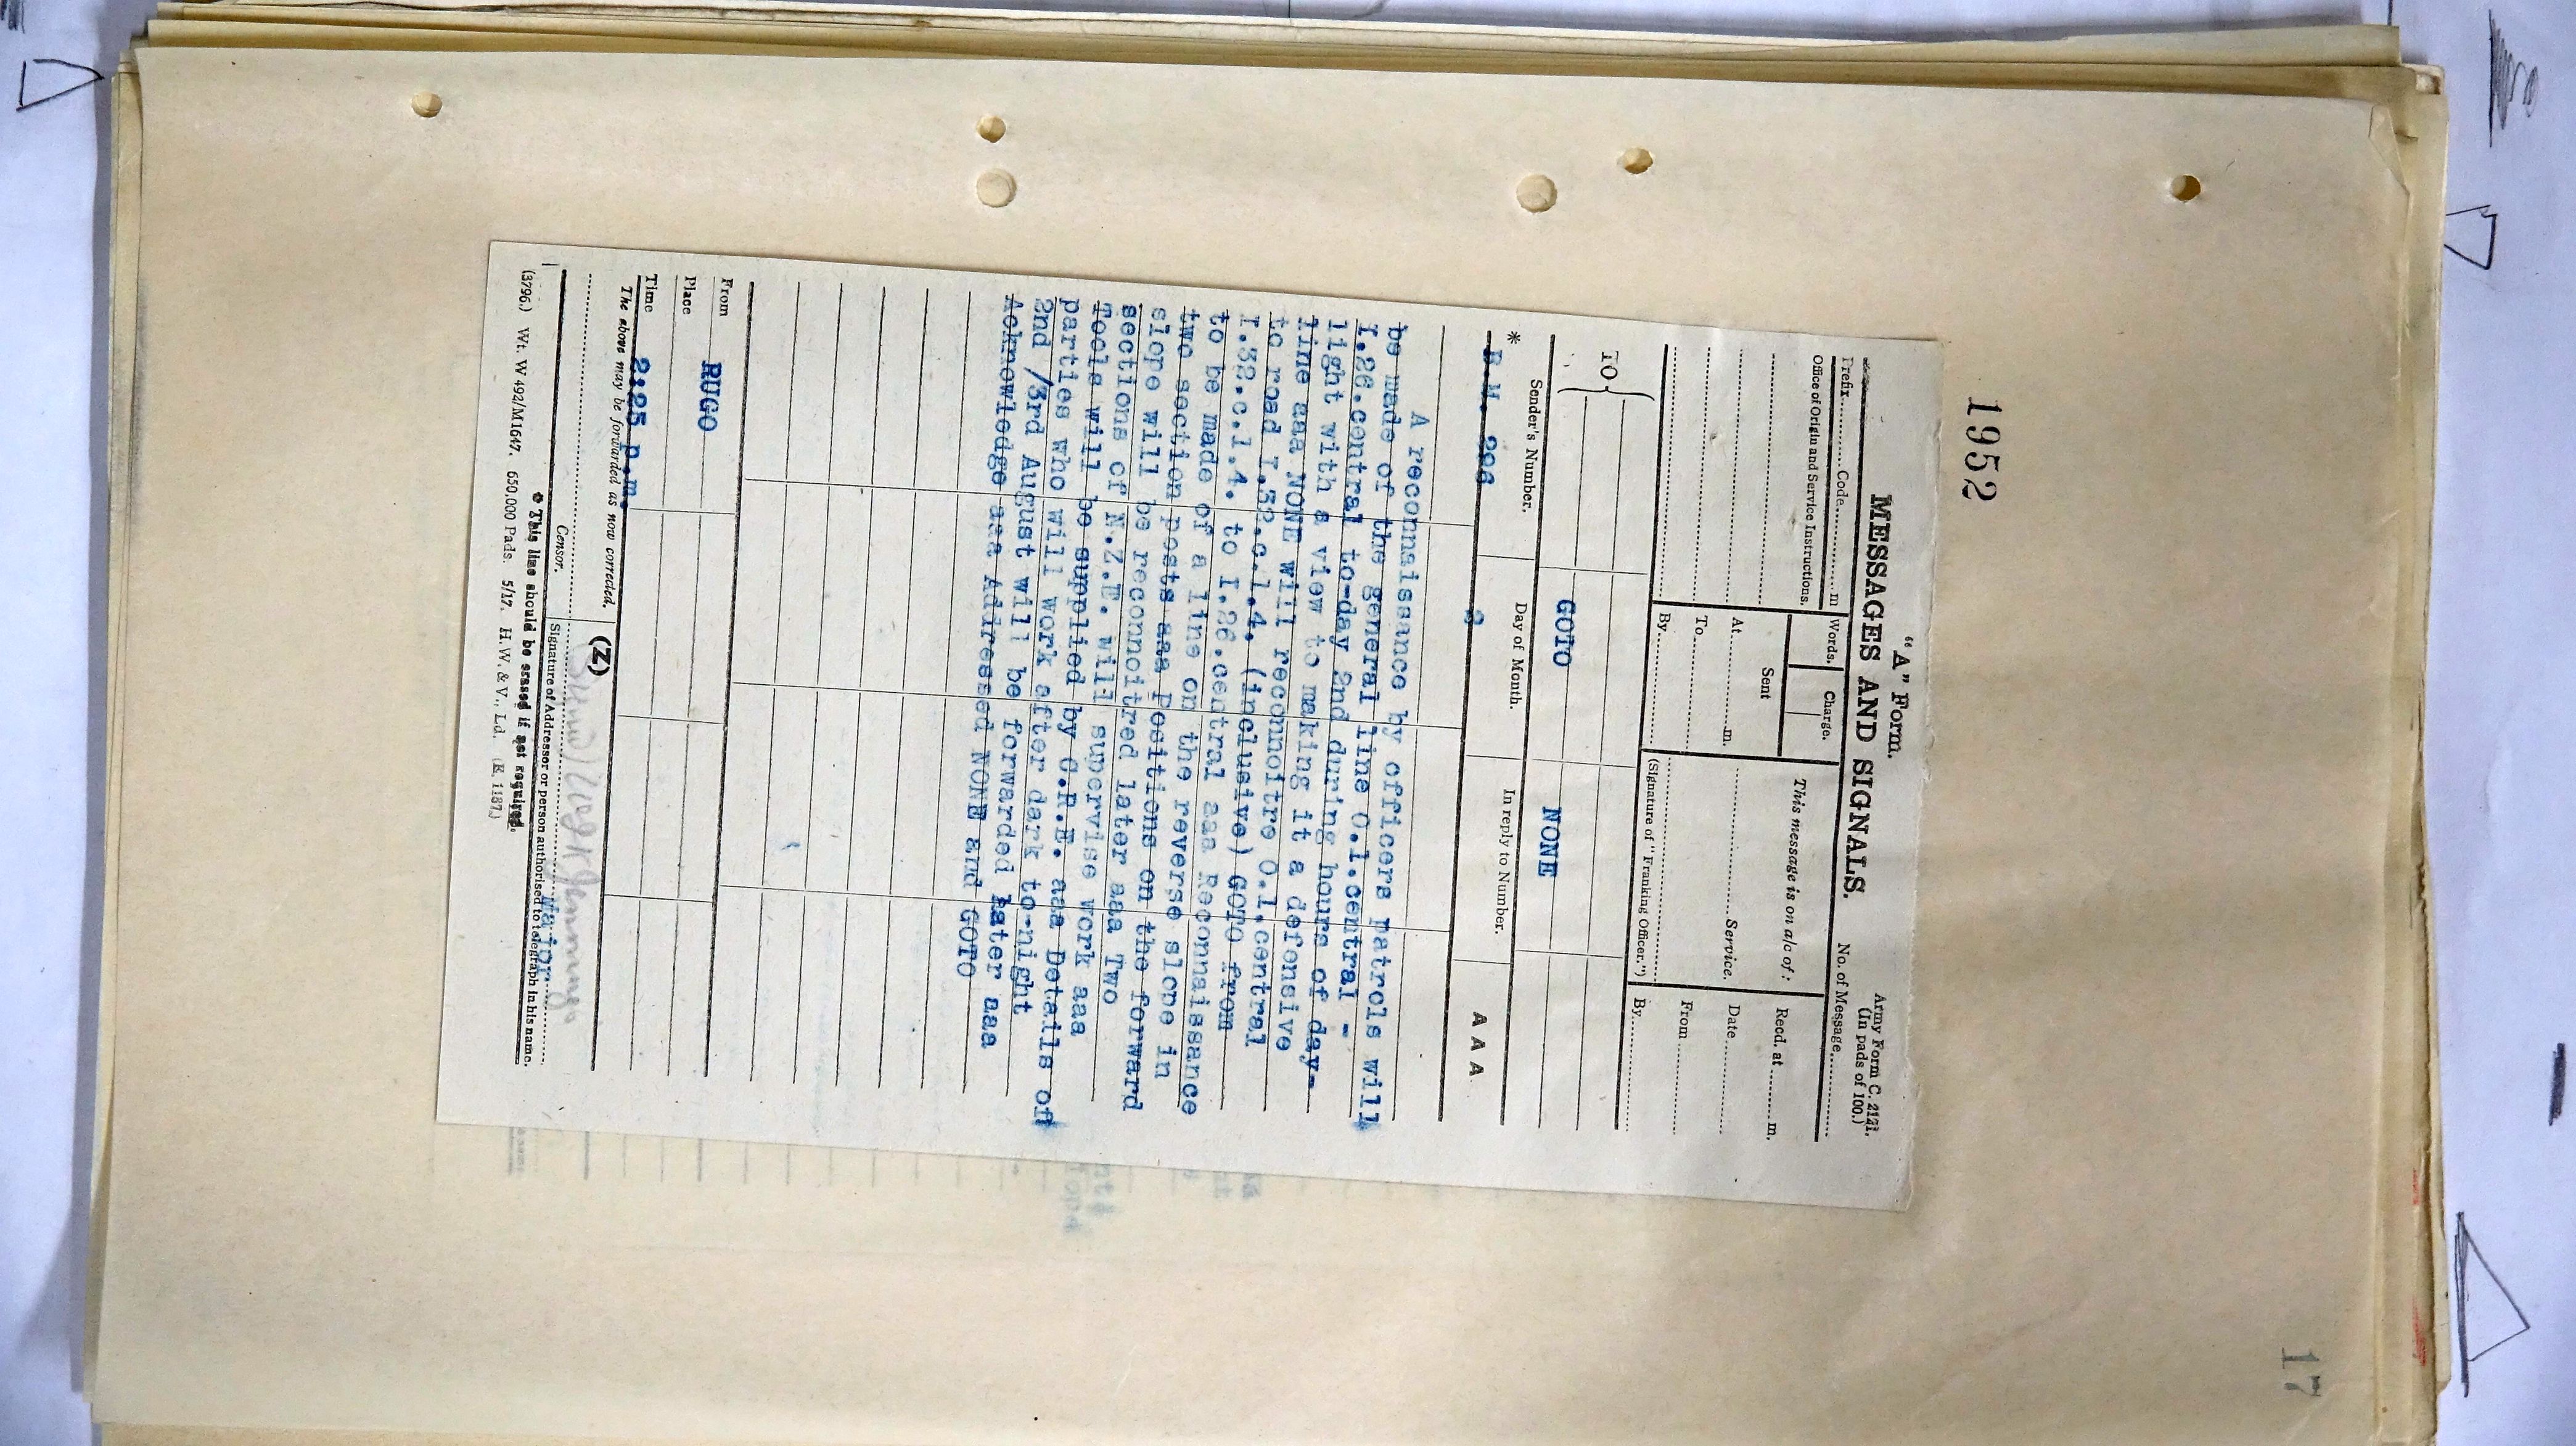 1952
17
"A" Form.
MESSAGES AND SIGNALS.
Army Form C. 2121.
(In pads of 100.)
No. of Message
Prefix Code m
Office of Origin and Service Instructions.
Words. Charge.
Sent
At m.
To
By
This message is on a/c of:
Service.
(Signature of "Franking Officer.")
Recd. at m.
Date
From
By
TO
GOTO NONE
* Sender's Number. Day of Month. In reply to Number. AAA
B.M. 296 2
A reconnaissance by officers patrols will
be made of the general line O.1.central -
I.26.central to-day 2nd during hours of day-
light with a view to making it a defensive
line aaa NONE will reconnoitre O.1.central
to road I.32.c.1.4. (inclusive) GOTO from
I.32.c.1.4. to I.26.central aaa Reconnaissance
to be made of a line on the reverse slope in
two section posts aaa Positions on the forward
slope will be reconnoitred later aaa Two
sections of N.Z.E. will supervise work aaa
Tools will be supplied by C.R.E. aaa Details of
parties who will work after dark to-night
2nd /3rd August will be forwarded later aaa
Acknowledge aaa Addressed NONE and GOTO
From RUGO
Place
Time 2:25 p.m.
The above may be forwarded as now corrected. (Z)
Major
Censor. Signature of Addressor or person authorised to telegraph in his name.
* This line should be erased if not required.
(3796.) Wt. W 492/M1647. 650,000 Pads. 5/17. H.W. & V., Ld. (E. 1187.)